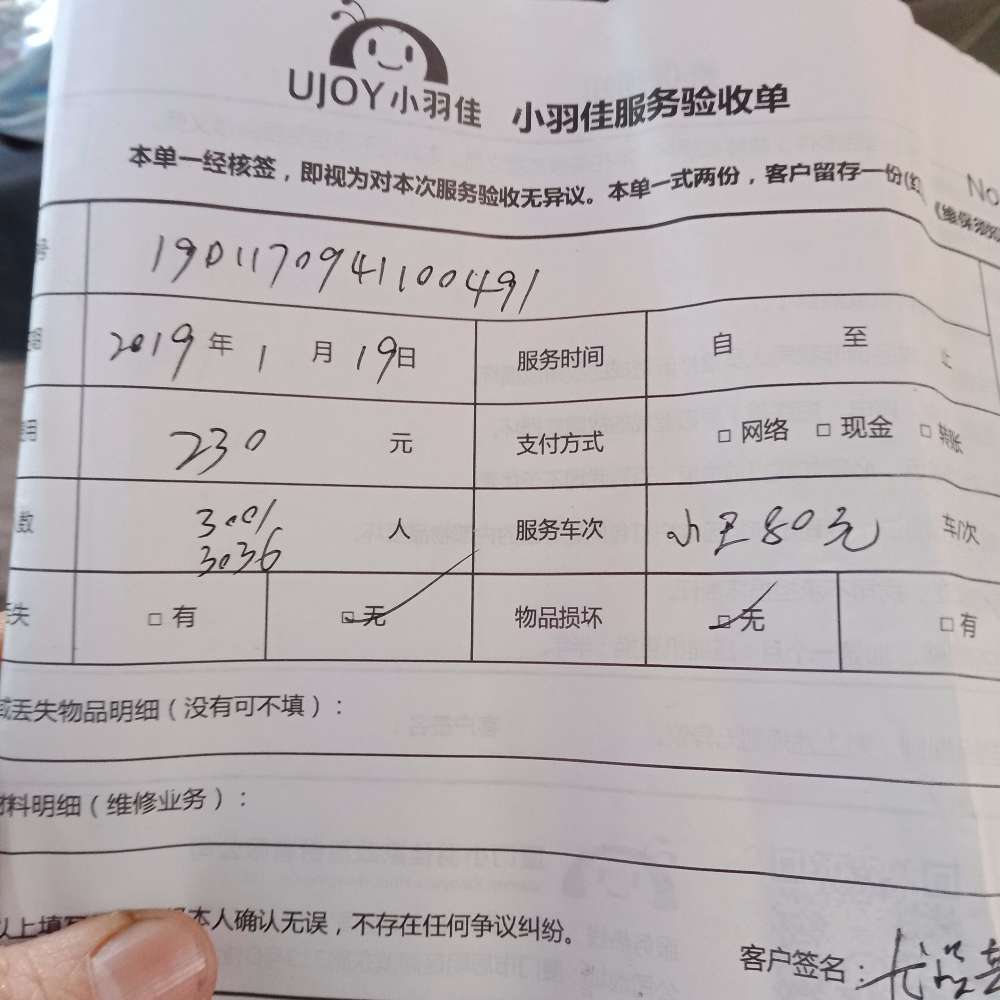 UJOY小羽佳 小羽佳服务验收单
本单一经核签，即视为对本次服务验收无异议。本单一式两份，客户留存一份(红
No
号 1901170941100491
2019年1月19日 服务时间 自 至 止
用 230 元 支付方式 □网络 □现金 □转账
数 3001 3036 人 服务车次 80元 车/次
失 □有 □无 物品损坏 □无 □有
或丢失物品明细（没有可不填）：
材料明细（维修业务）：
以上填写 本人确认无误，不存在任何争议纠纷。
客户签名：